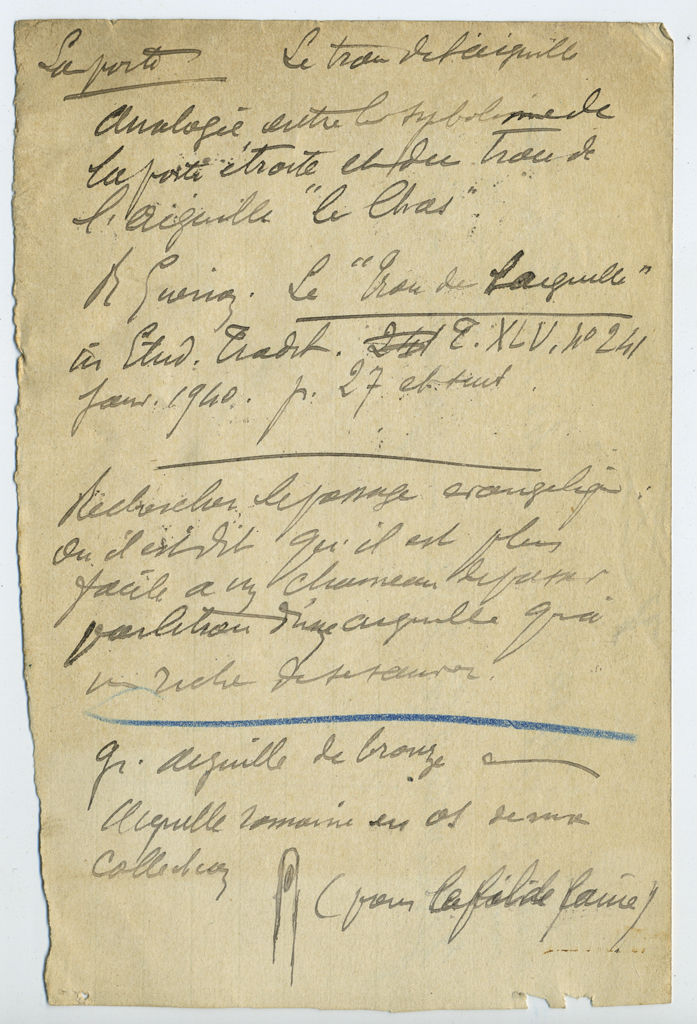 La porte Le trou de l'aiguille
Analogie entre le symbolisme de
la porte étroite et du trou de
l'aiguille "le Chas".
R Guénon. Le "Trou de l'aiguille"
in Etud. Tradit. T. XLV, n° 241
Janv. 1940. p. 27 et suiv.
Rechercher le passage évangélique
ou il est dit qu'il est plus
facile a un chameau de passer
par le trou d'une aiguille qu'à
un riche de se sauver.
gr. aiguille de bronze
Aiguille romaine en os de ma
Collection
(pour